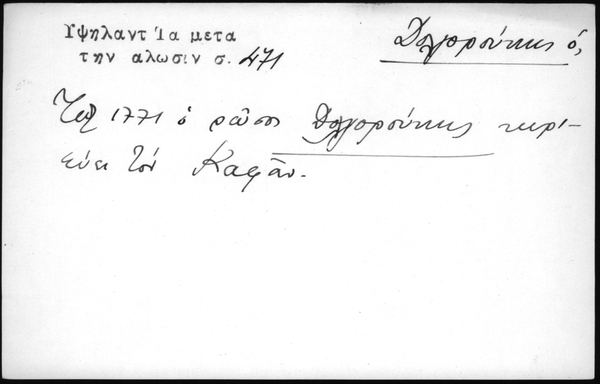 Υψηλαντ Ία μετα
την αλωσιν σ. 471
Δολγορούκης ὁ,
Τῷ 1771 ὁ ρῶσος Δολγορούκης κυρι-
εύει τὸν Καφᾶν.